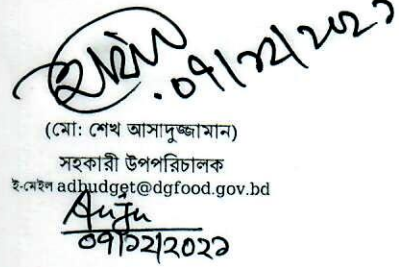 .০৭/১২/২০২১
(মো: শেখ আসাদুজ্জামান)
সহকারী উপপরিচালক
ই-মেইল adbudget@dgfood.gov.bd
০৭/১২/২০২১